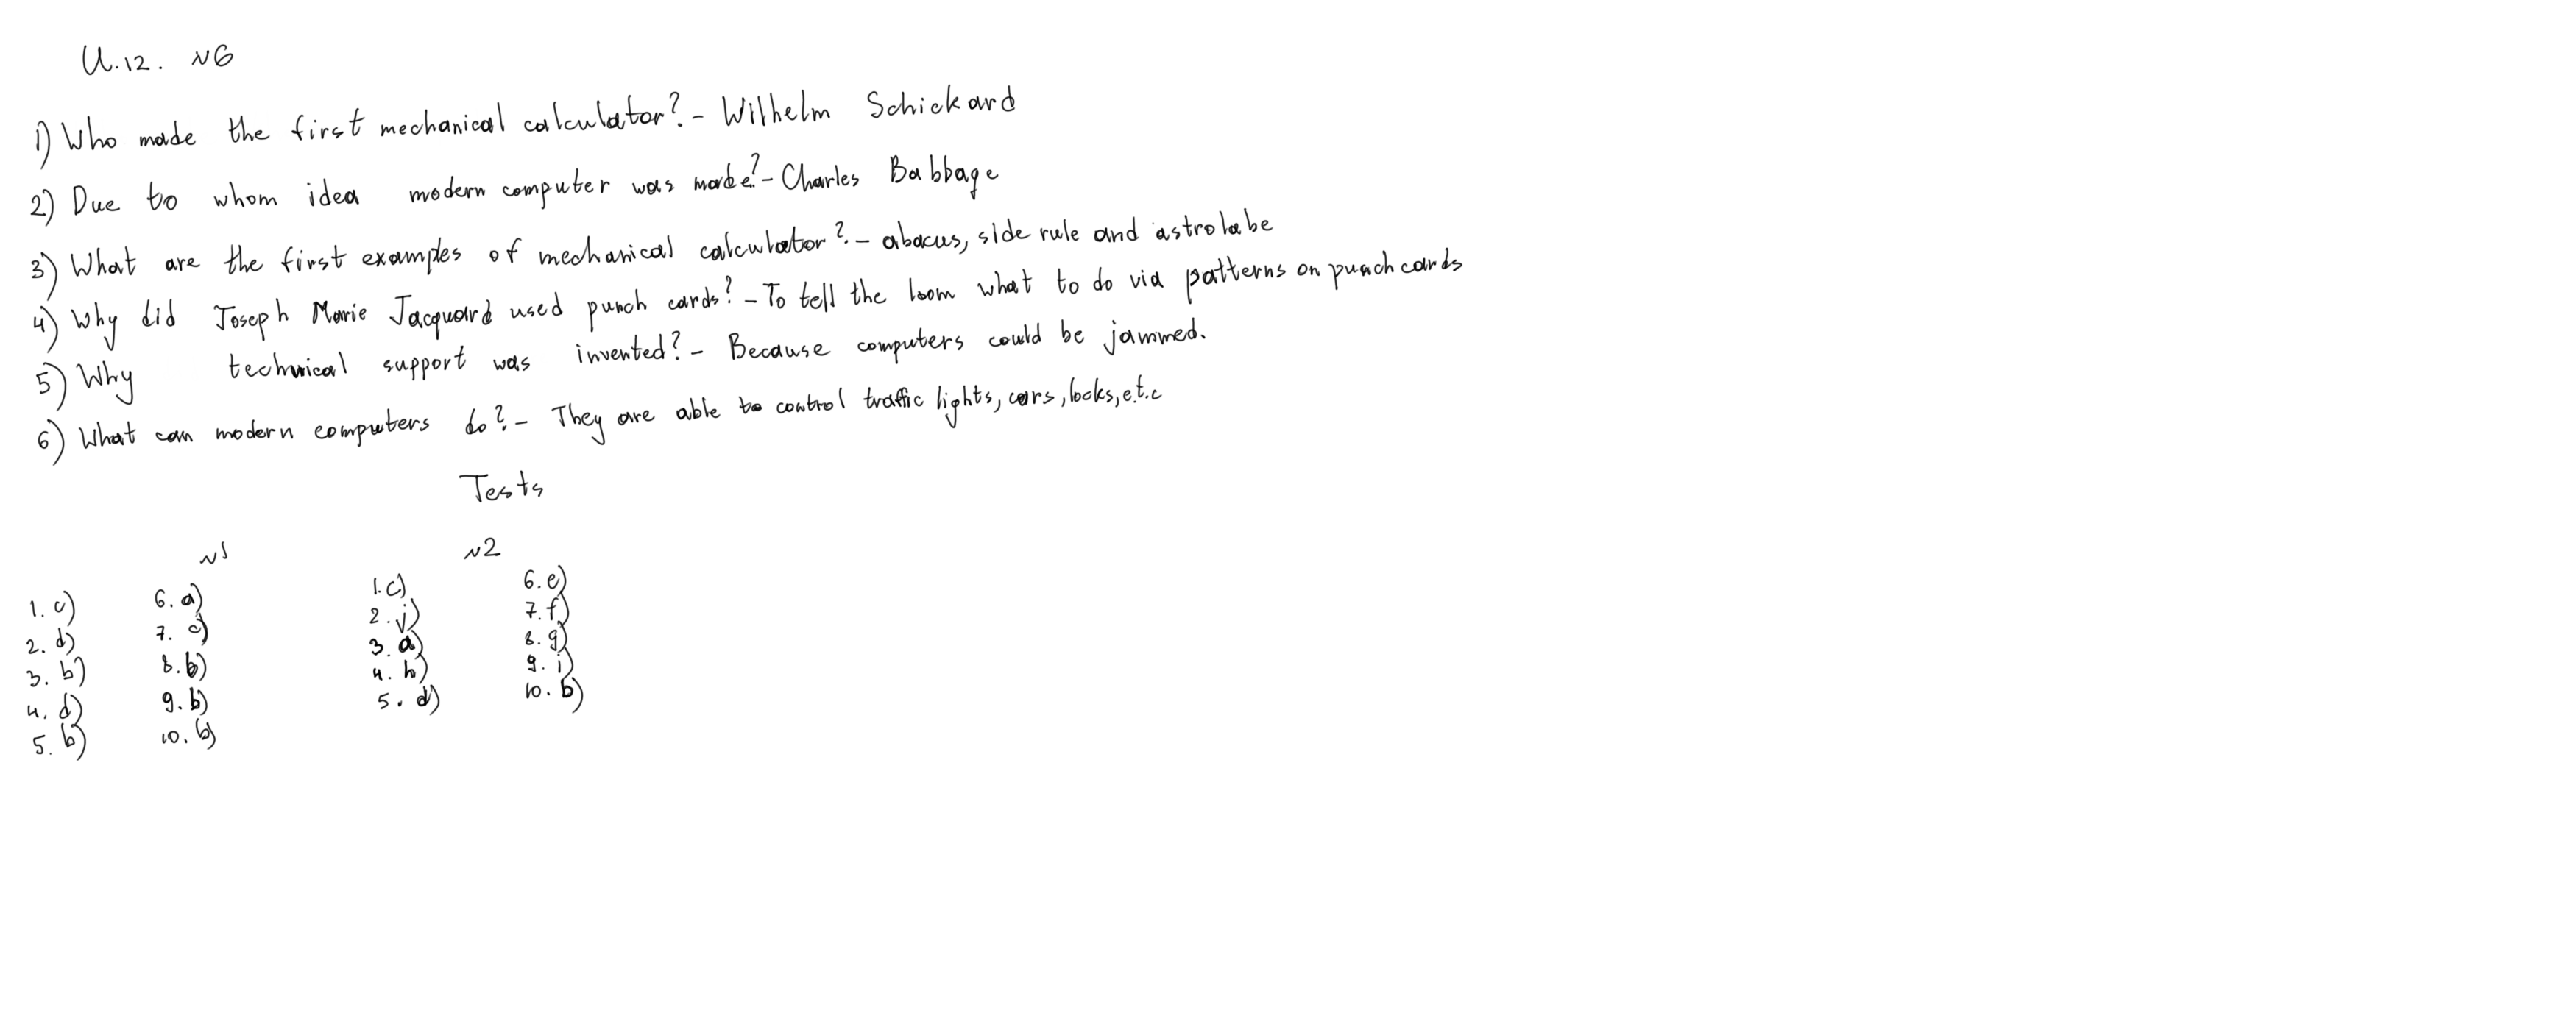 U.12. N6
1) Who made the first mechanical calculator? - Wilhelm Schickard
2) Due to whom idea modern computer was made? - Charles Babbage
3) What are the first examples of mechanical calculator? - abacus, side rule and astrolabe
4) Why did Joseph Marie Jacquard used punch cards? - To tell the loom what to do via patterns on punch cards
5) Why technical support was invented? - Because computers could be jammed.
6) What can modern computers do? - They are able to control traffic lights, cars, locks, e.t.c
Tests
N1
1. c)
2. d)
3. b)
4. d)
5. b)
6. a)
7. c)
8. b)
9. b)
10. b)
N2
1. c)
2. j)
3. a)
4. h)
5. d)
6. e)
7. f)
8. g)
9. i)
10. b)